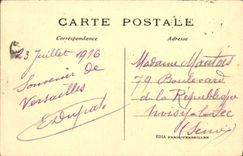 CARTE POSTALE
Correspondance
Adresse
23 Juillet 1916
Souvenir de
Versailles
EDupat
Madame Mautas
79 Boulevard
de la République
Noisy-le-Sec
(Seine)
EDIA PARIS-VERSAILLES